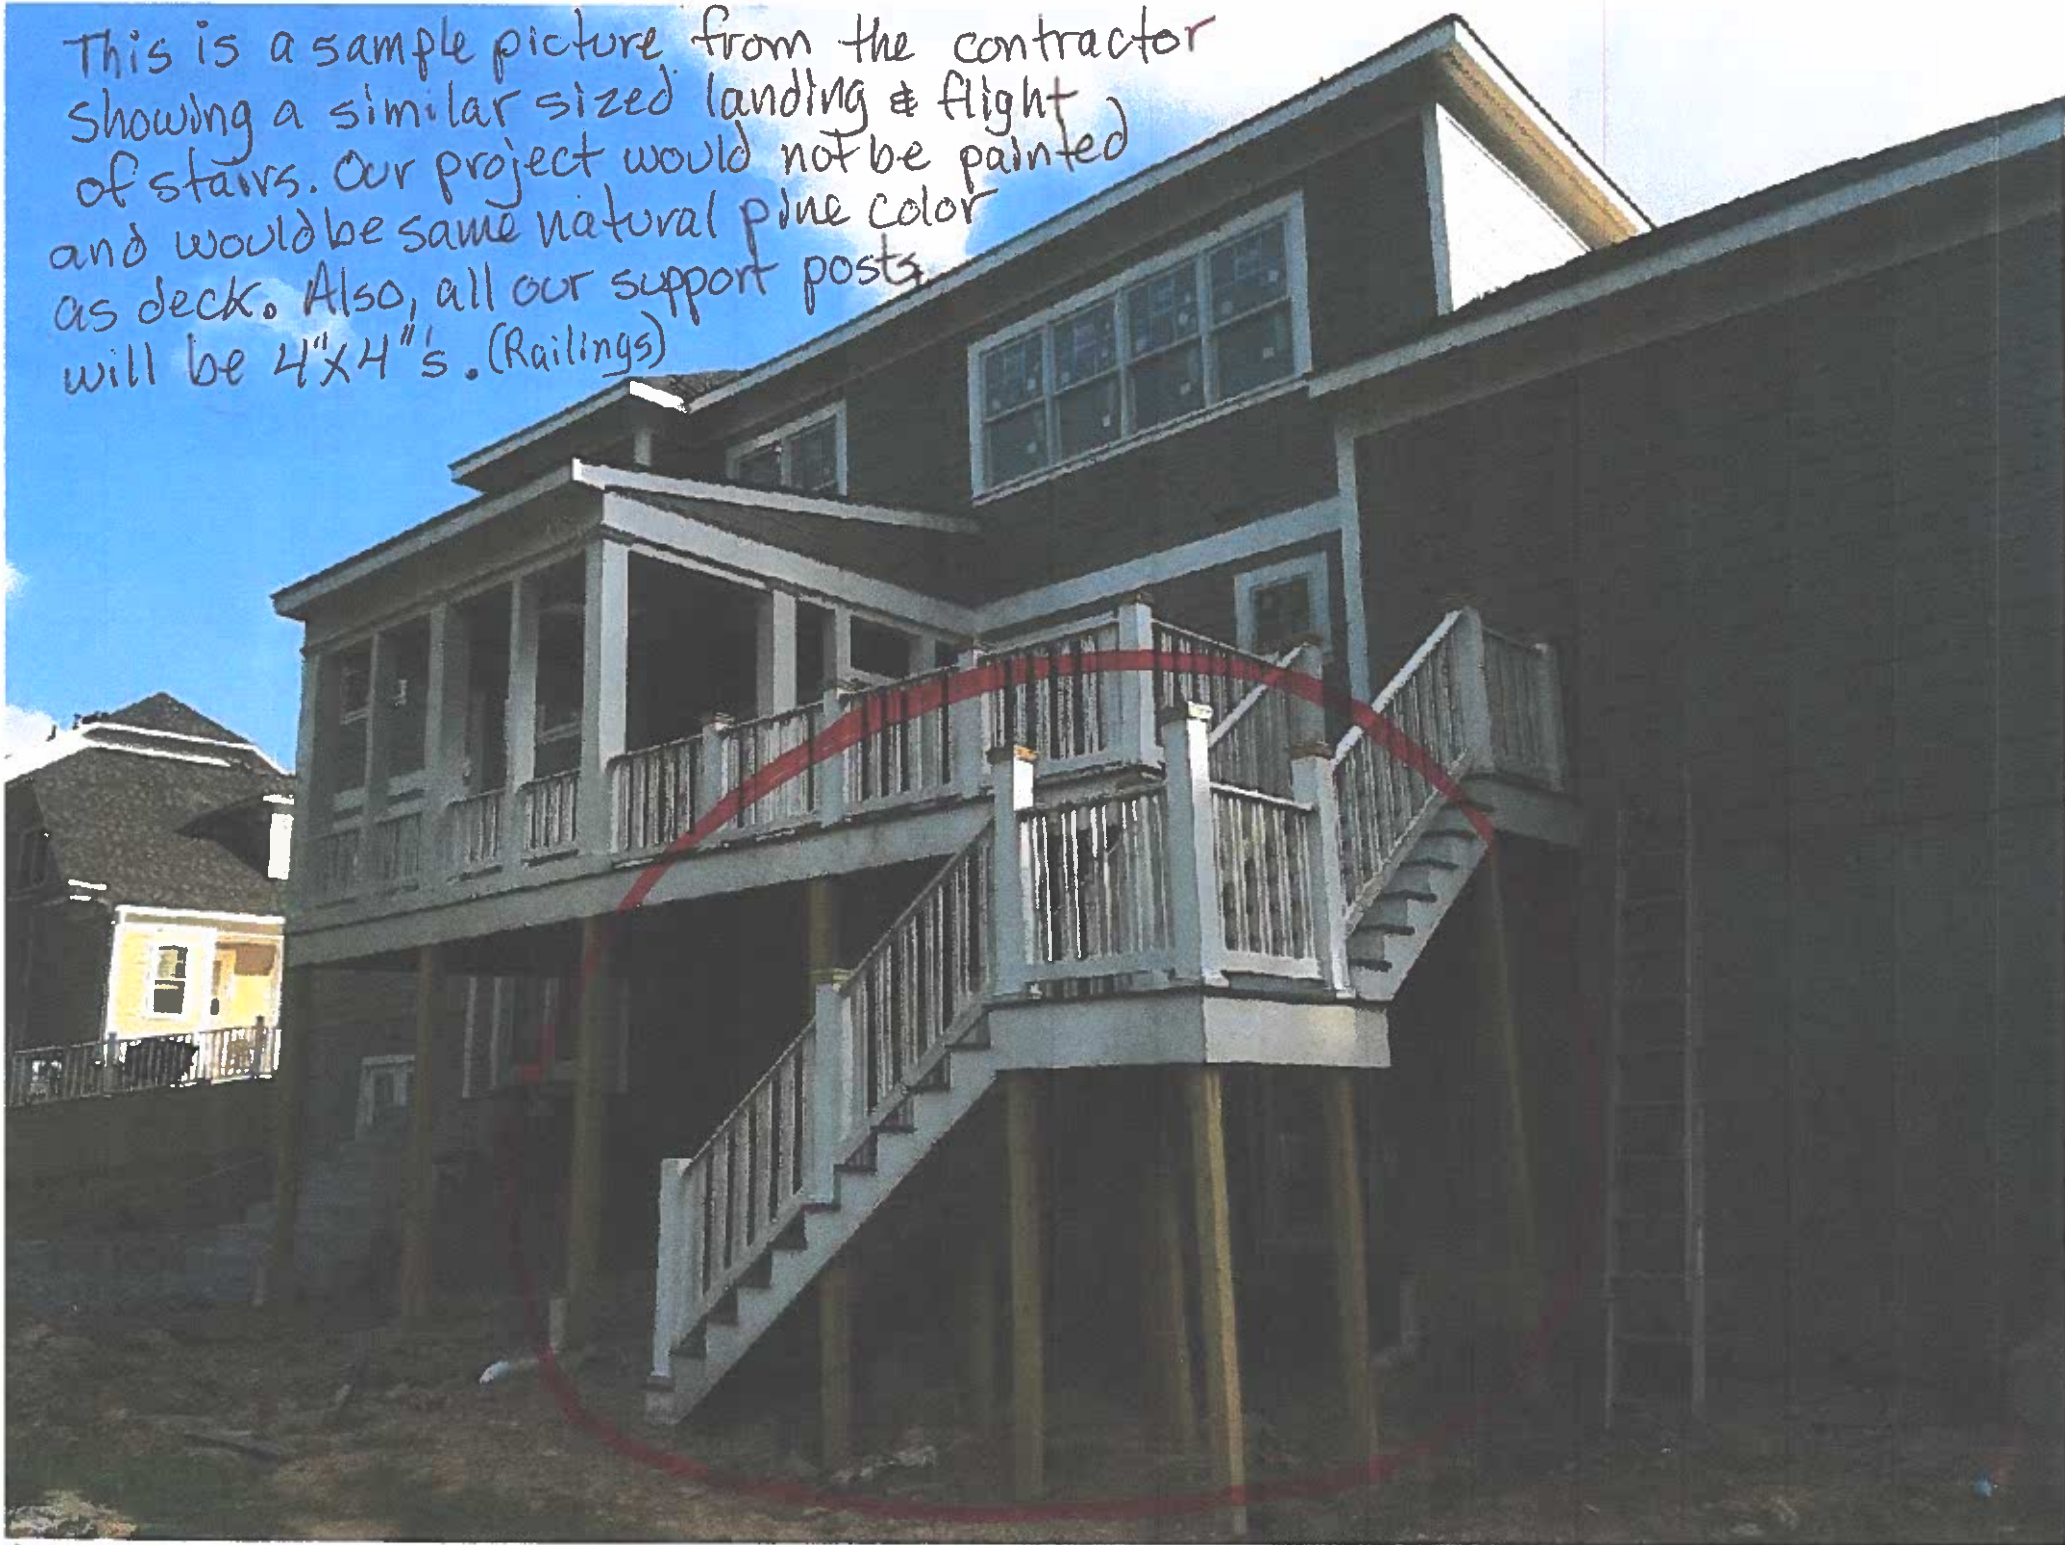 This is a sample picture from the contractor
showing a similar sized landing & flight
of stairs. Our project would not be painted
and would be same natural pine color
as deck. Also, all our support posts
will be 4"x4"'s. (Railings)